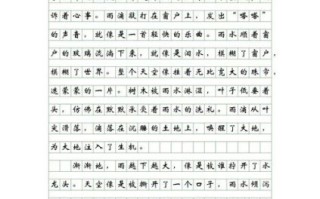 饰着心事。雨滴敲打在窗户上，发出“嗒嗒”
的声音，就像是一首轻快的乐曲。雨水顺着窗
户的玻璃流淌下来，就像是泪水，模糊了窗户，
模糊了世界。整个天空像挂着无比宽大的珠帘，
迷蒙蒙的一片。树木被雨水淋湿，叶子低垂着
头，仿佛在默默承受着雨水的洗礼。雨滴从叶
尖滑落，滴落在沉睡的土地上，唤醒了大地，
为大地注入了生机。
渐渐地，雨越下越大，像是被谁拧开了水
龙头。天空像是被撕开了一个口子，雨水倾泻